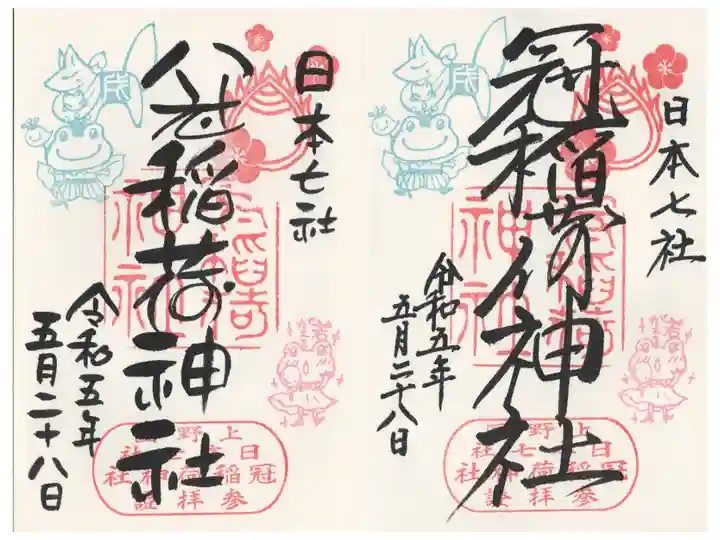 日本七社
稲荷神社
令和五年
五月二十八日
上野国
日本七社
冠稲荷神社
参拝證
日本七社
冠稲荷神社
令和五年
五月二十八日
上野国
日本七社
冠稲荷神社
参拝證